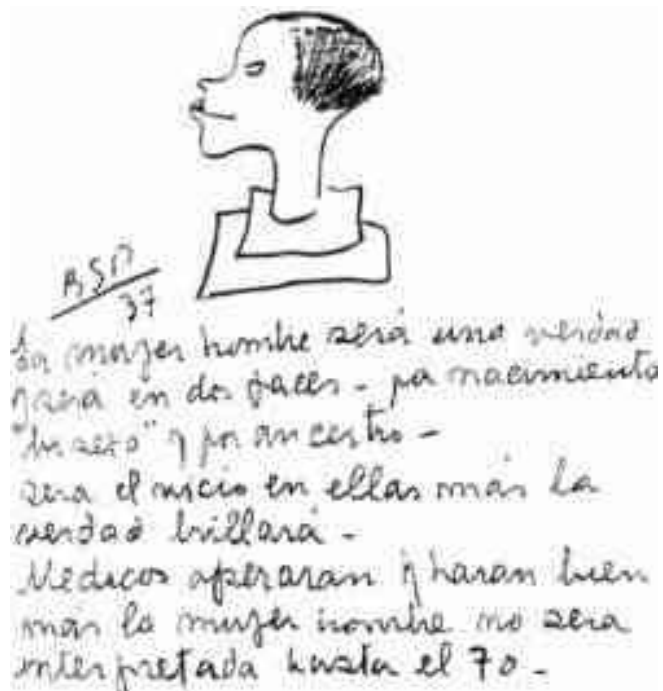 BSP
37
La mujer hombre será una verdad
será en dos faces - por nacimiento
y por ancestro -
sera el vicio en ellas más la
verdad brillará -
Medicos operaran y haran bien
más la mujer hombre no sera
interpretada hasta el 70 -